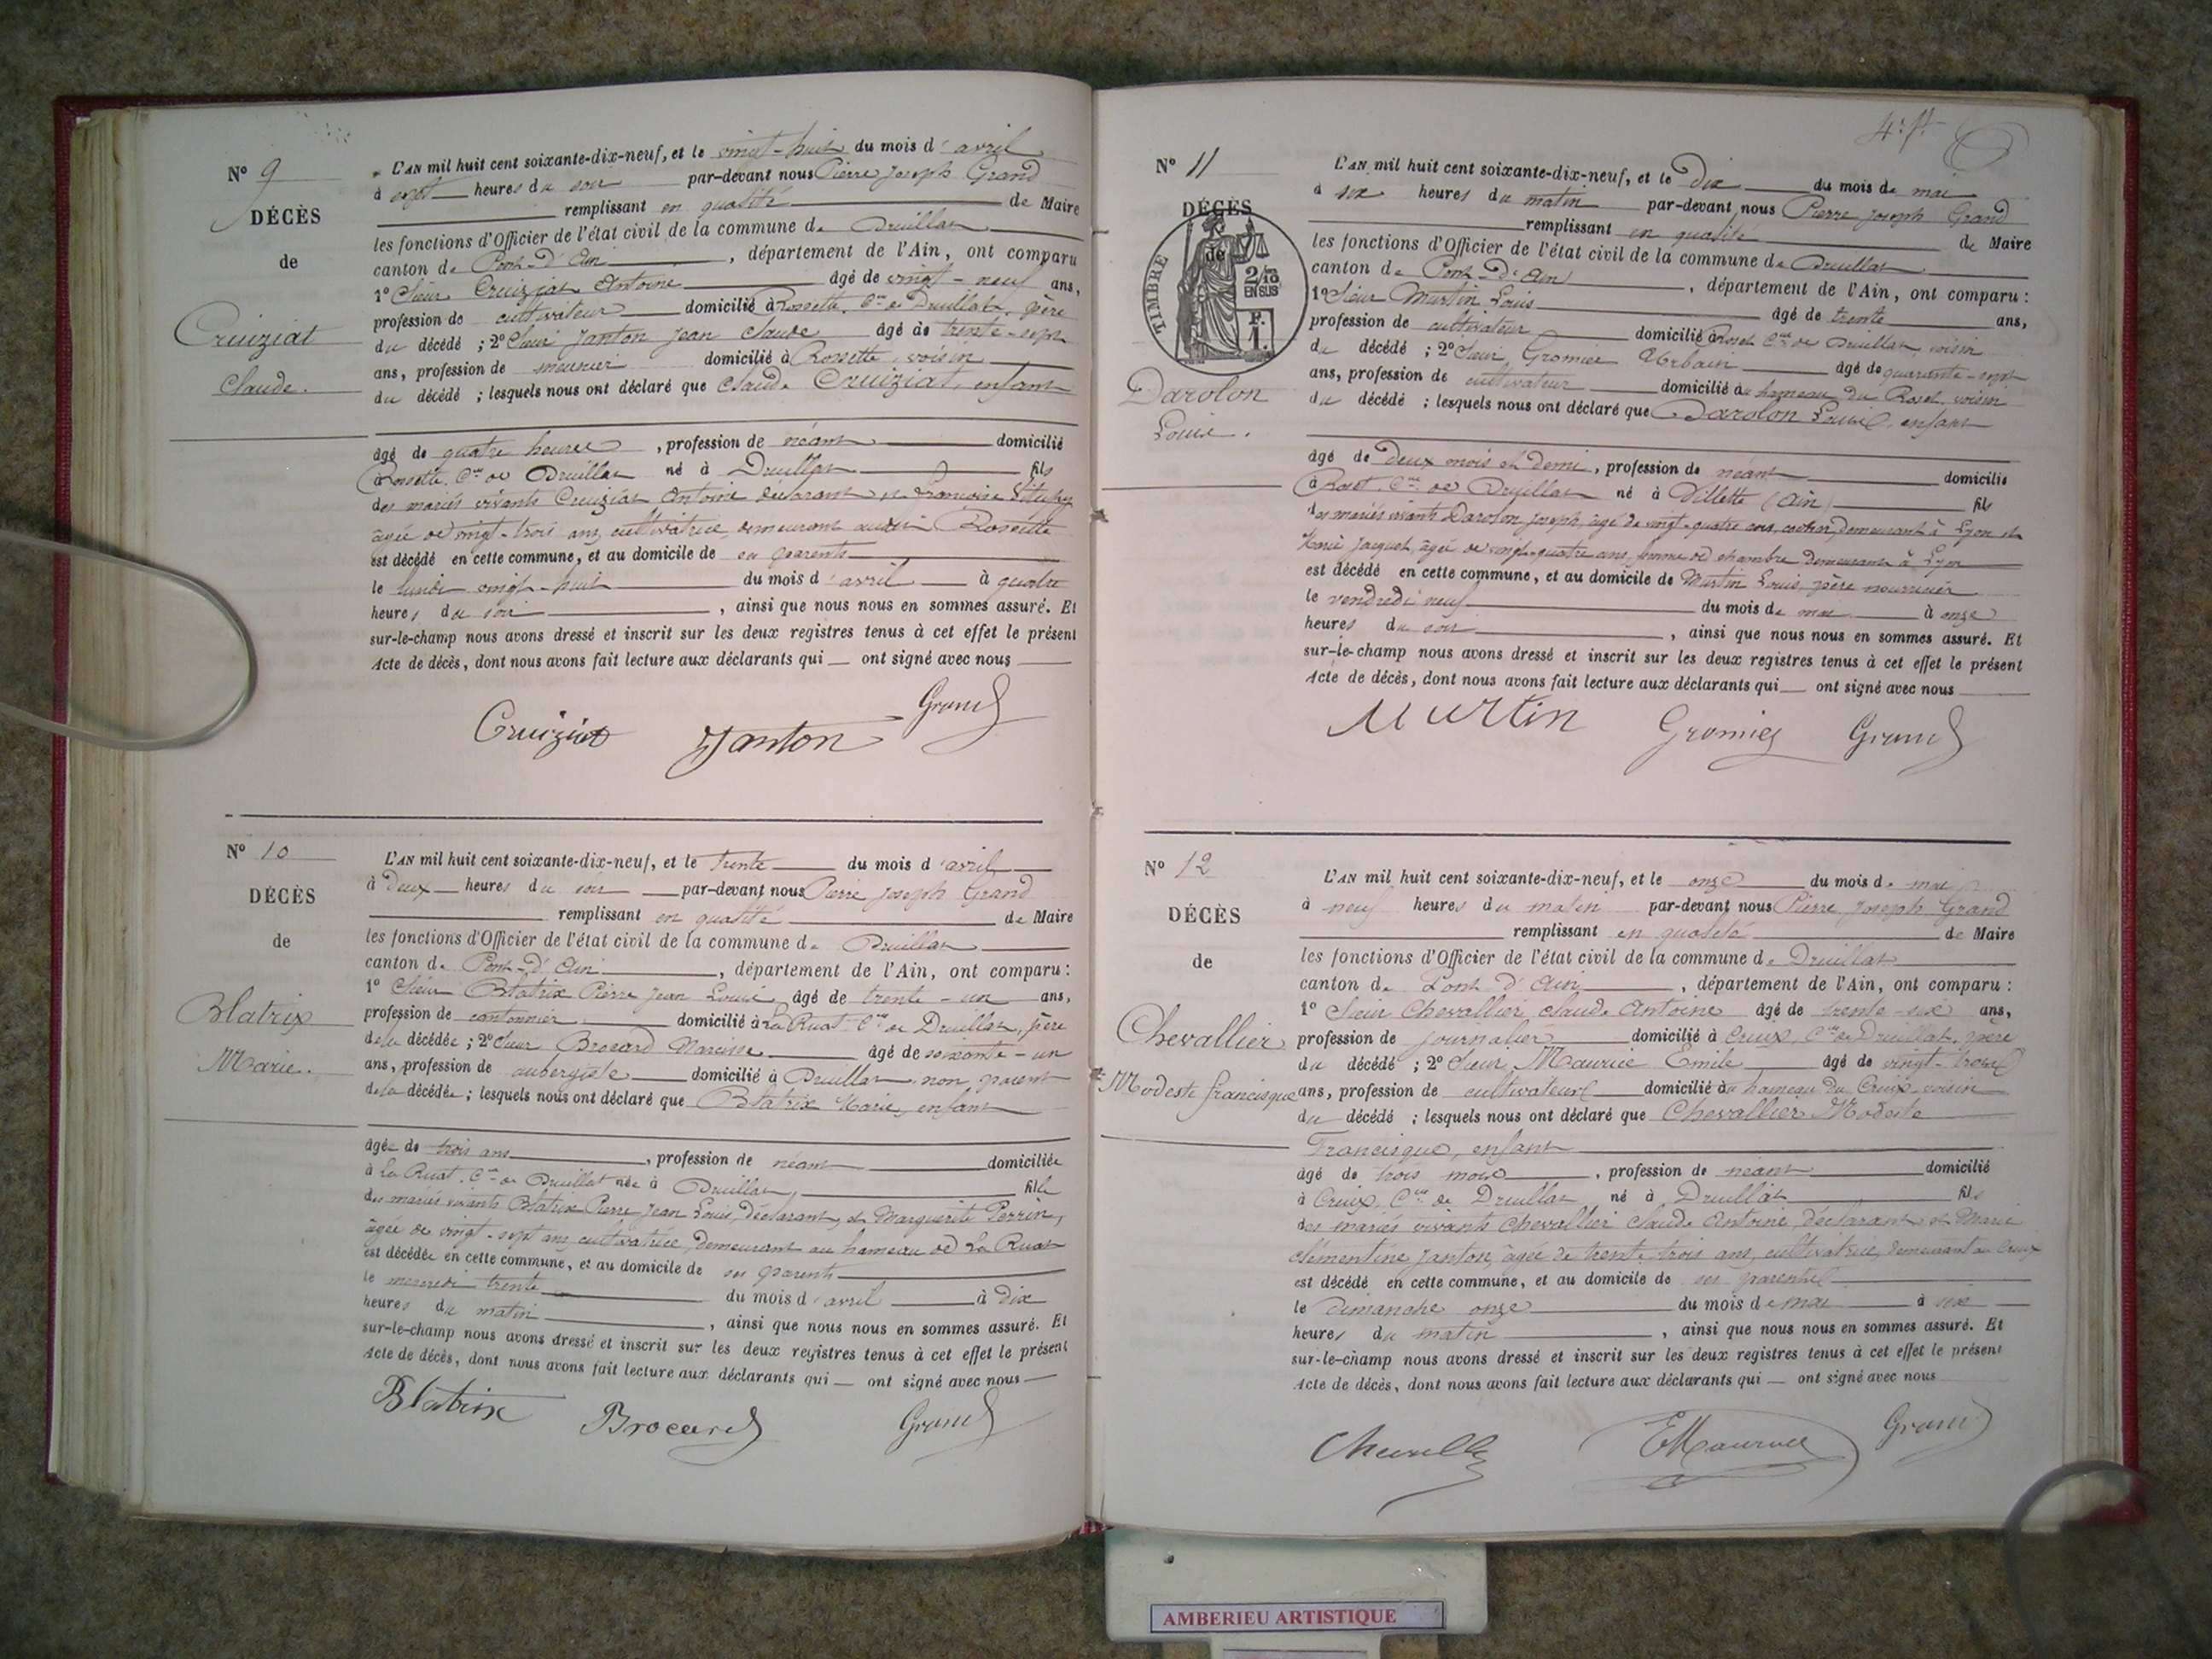 Nº 9
DÉCÈS
de
Cruiziat
Claude.
L'AN mil huit cent soixante-dix-neuf, et le vingt-huit du mois d'avril
à sept heures du soir par-devant nous Pierre Joseph Grand
remplissant en qualité de Maire
les fonctions d'Officier de l'état civil de la commune de Druillat
canton de Pont-d'Ain, département de l'Ain, ont comparu
1º Sieur Cruiziat Antoine âgé de vingt-neuf ans,
profession de cultivateur domicilié à Rossette, Cne de Druillat, père
du décédé ; 2º Sieur Janton Jean Claude âgé de trente-sept
ans, profession de meunier domicilié à Rossette, voisin
du décédé ; lesquels nous ont déclaré que Claude Cruiziat, enfant
âgé de quatre heures, profession de néant domicilié
à Rossette, Cne de Druillat né à Druillat fils
des mariés vivants Cruiziat Antoine déclarant et Françoise
âgée de vingt-trois ans, cultivatrice, demeurant aussi à Rossette
est décédé en cette commune, et au domicile de ses parents
le lundi vingt-huit du mois d'avril à quatre
heures du soir, ainsi que nous nous en sommes assuré. Et
sur-le-champ nous avons dressé et inscrit sur les deux registres tenus à cet effet le présent
Acte de décès, dont nous avons fait lecture aux déclarants qui ont signé avec nous
Cruiziat Janton Grand
Nº 10
DÉCÈS
de
Blatrix
Marie.
L'AN mil huit cent soixante-dix-neuf, et le trente du mois d'avril
à deux heures du soir par-devant nous Pierre Joseph Grand
remplissant en qualité de Maire
les fonctions d'Officier de l'état civil de la commune de Druillat
canton de Pont-d'Ain, département de l'Ain, ont comparu :
1º Sieur Blatrix Pierre Jean Louis, âgé de trente-un ans,
profession de cantonnier domicilié à La Ruat Cne de Druillat, père
de la décédée ; 2º Sieur Brocard Narcisse âgé de soixante-un
ans, profession de aubergiste domicilié à Druillat, non parent
de la décédée ; lesquels nous ont déclaré que Blatrix Marie, enfant
âgée de trois ans, profession de néant domiciliée
à La Ruat, Cne de Druillat née à Druillat, fille
des mariés vivants Blatrix Pierre Jean Louis, déclarant, et Marguerite Perrin,
âgée de vingt-sept ans, cultivatrice, demeurant au hameau de La Ruat
est décédée en cette commune, et au domicile de ses parents
le mercredi trente du mois d'avril à dix
heures du matin, ainsi que nous nous en sommes assuré. Et
sur-le-champ nous avons dressé et inscrit sur les deux registres tenus à cet effet le présent
Acte de décès, dont nous avons fait lecture aux déclarants qui ont signé avec nous
Blatrix Brocard Grand
Nº 11
DÉCÈS
de
TIMBRE
2/10
EN SUS
F.
1.
Darolon
Louis.
L'AN mil huit cent soixante-dix-neuf, et le dix du mois de mai
à six heures du matin par-devant nous Pierre Joseph Grand
remplissant en qualité de Maire
les fonctions d'Officier de l'état civil de la commune de Druillat
canton de Pont-d'Ain, département de l'Ain, ont comparu :
1º Sieur Martin Louis âgé de trente ans,
profession de cultivateur domicilié à Roset Cne de Druillat, voisin
du décédé ; 2º Sieur Gromier Urbain âgé de quarante-sept
ans, profession de cultivateur domicilié au hameau du Roset, voisin
du décédé ; lesquels nous ont déclaré que Darolon Louis, enfant
âgé de deux mois et demi, profession de néant domicilié
à Roset, Cne de Druillat né à Villette (Ain) fils
des mariés vivants Darolon Joseph, âgé de vingt-quatre ans, cocher, demeurant à Lyon et
Marie Jacquet, âgée de vingt-quatre ans, femme de chambre demeurant à Lyon
est décédé en cette commune, et au domicile de Martin Louis, père nourricier
le vendredi neuf du mois de mai à onze
heures du soir, ainsi que nous nous en sommes assuré. Et
sur-le-champ nous avons dressé et inscrit sur les deux registres tenus à cet effet le présent
Acte de décès, dont nous avons fait lecture aux déclarants qui ont signé avec nous
Martin Gromier Grand
Nº 12
DÉCÈS
de
Chevallier
Modeste francisque
L'AN mil huit cent soixante-dix-neuf, et le onze du mois de mai
à neuf heures du matin par-devant nous Pierre Joseph Grand
remplissant en qualité de Maire
les fonctions d'Officier de l'état civil de la commune de Druillat
canton de Pont d'Ain, département de l'Ain, ont comparu :
1º Sieur Chevallier Claude Antoine âgé de trente-six ans,
profession de journalier domicilié à Creux, Cne de Druillat, père
du décédé ; 2º Sieur Maurice Emile âgé de vingt-trois
ans, profession de cultivateur domicilié au hameau du Creux, voisin
du décédé ; lesquels nous ont déclaré que Chevallier Modeste
Francisque, enfant
âgé de trois mois, profession de néant domicilié
à Creux, Cne de Druillat né à Druillat fils
des mariés vivants Chevallier Claude Antoine, déclarant et Marie
Clémentine Janton, âgée de trente-trois ans, cultivatrice, demeurant au Creux
est décédé en cette commune, et au domicile de ses parents
le dimanche onze du mois de mai à six
heures du matin, ainsi que nous nous en sommes assuré. Et
sur-le-champ nous avons dressé et inscrit sur les deux registres tenus à cet effet le présent
Acte de décès, dont nous avons fait lecture aux déclarants qui ont signé avec nous
Chevallier EMaurice Grand
AMBERIEU ARTISTIQUE